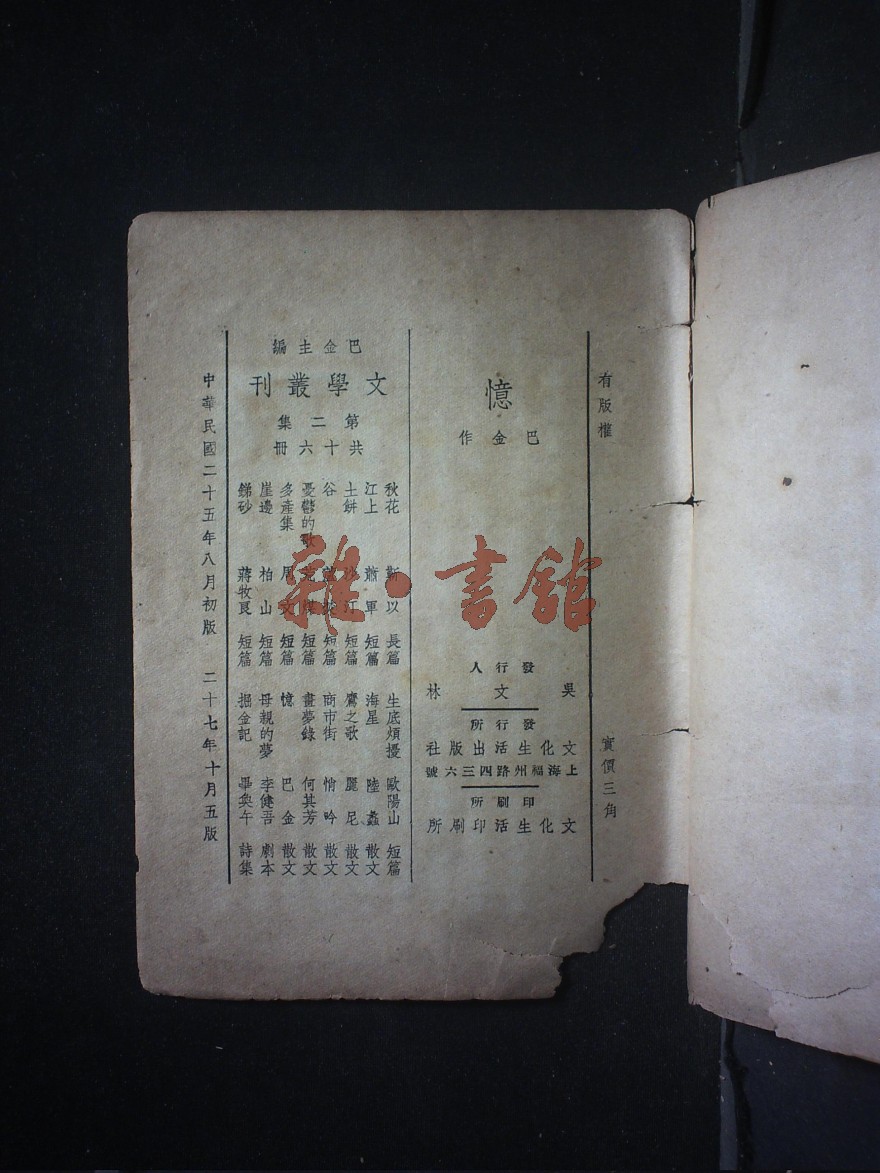 有版權
實價三角
憶
巴金作
發行人
吳文林
發行所
文化生活出版社
上海福州路四三六號
印刷所
文化生活印刷所
巴金主編
文學叢刊
第二集
共十六冊
秋花 靳以 長篇
江上 蕭軍 短篇
土餅 沙汀 短篇
谷 蘆焚 短篇
憂鬱的歌 荒煤 短篇
多產集 周文 短篇
崖邊 柏山 短篇
銻砂 蔣牧良 短篇
生底煩擾 歐陽山 短篇
海星 陸蠡 散文
鷹之歌 麗尼 散文
商市街 悄吟 散文
畫夢錄 何其芳 散文
憶 巴金 散文
母親的夢 李健吾 劇本
掘金記 畢奐午 詩集
中華民國二十五年八月初版 二十七年十月五版
雜·書館